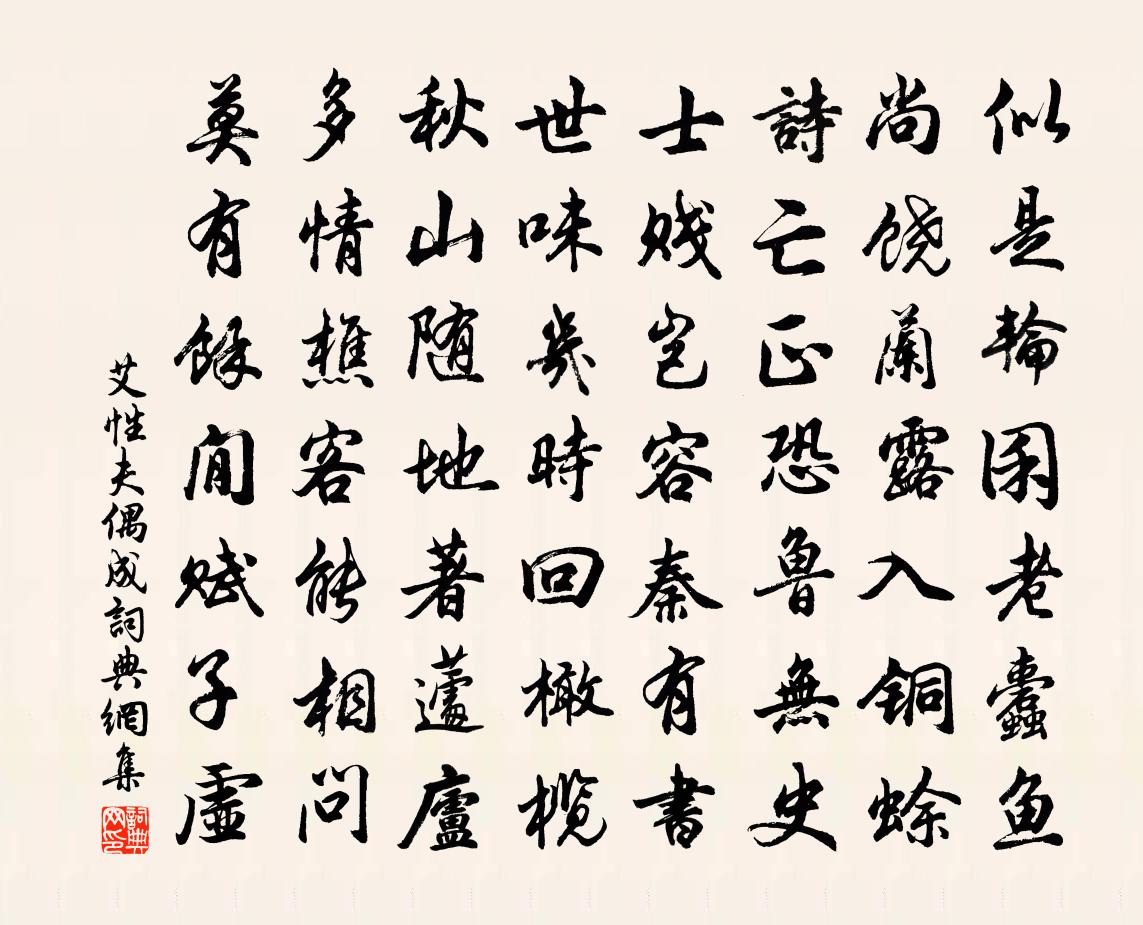 似是輪囷老蠹魚
尚饒蘭露入銅蜍
詩亡正恐魯無史
士賤豈容秦有書
世味幾時回橄欖
秋山隨地著蘧廬
多情樵客能相問
莫有餘閒賦子虛
艾性夫偶成詞典網集
詞典網印